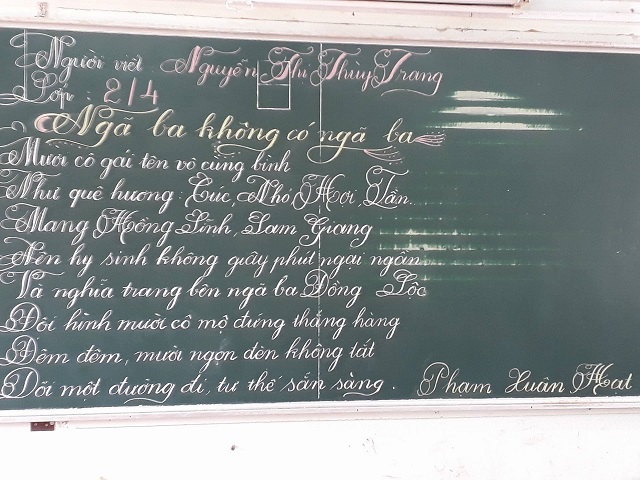 Người viết: Nguyễn Thị Thùy Trang
Lớp: 2/4
Ngã ba không có ngã ba
Mười cô gái tên vô cùng bình
Như quê hương: Cúc, Nhỏ, Hợi, Tần.
Mang Hồng Lĩnh, Lam Giang
Nên hy sinh không giây phút ngại ngần
Và nghĩa trang bên ngã ba Đồng Lộc
Đội hình mười cô mộ đứng thẳng hàng
Đêm đêm, mười ngọn đèn không tắt
Dõi một đường đi, tư thế sẵn sàng.
Phạm Xuân Hạt